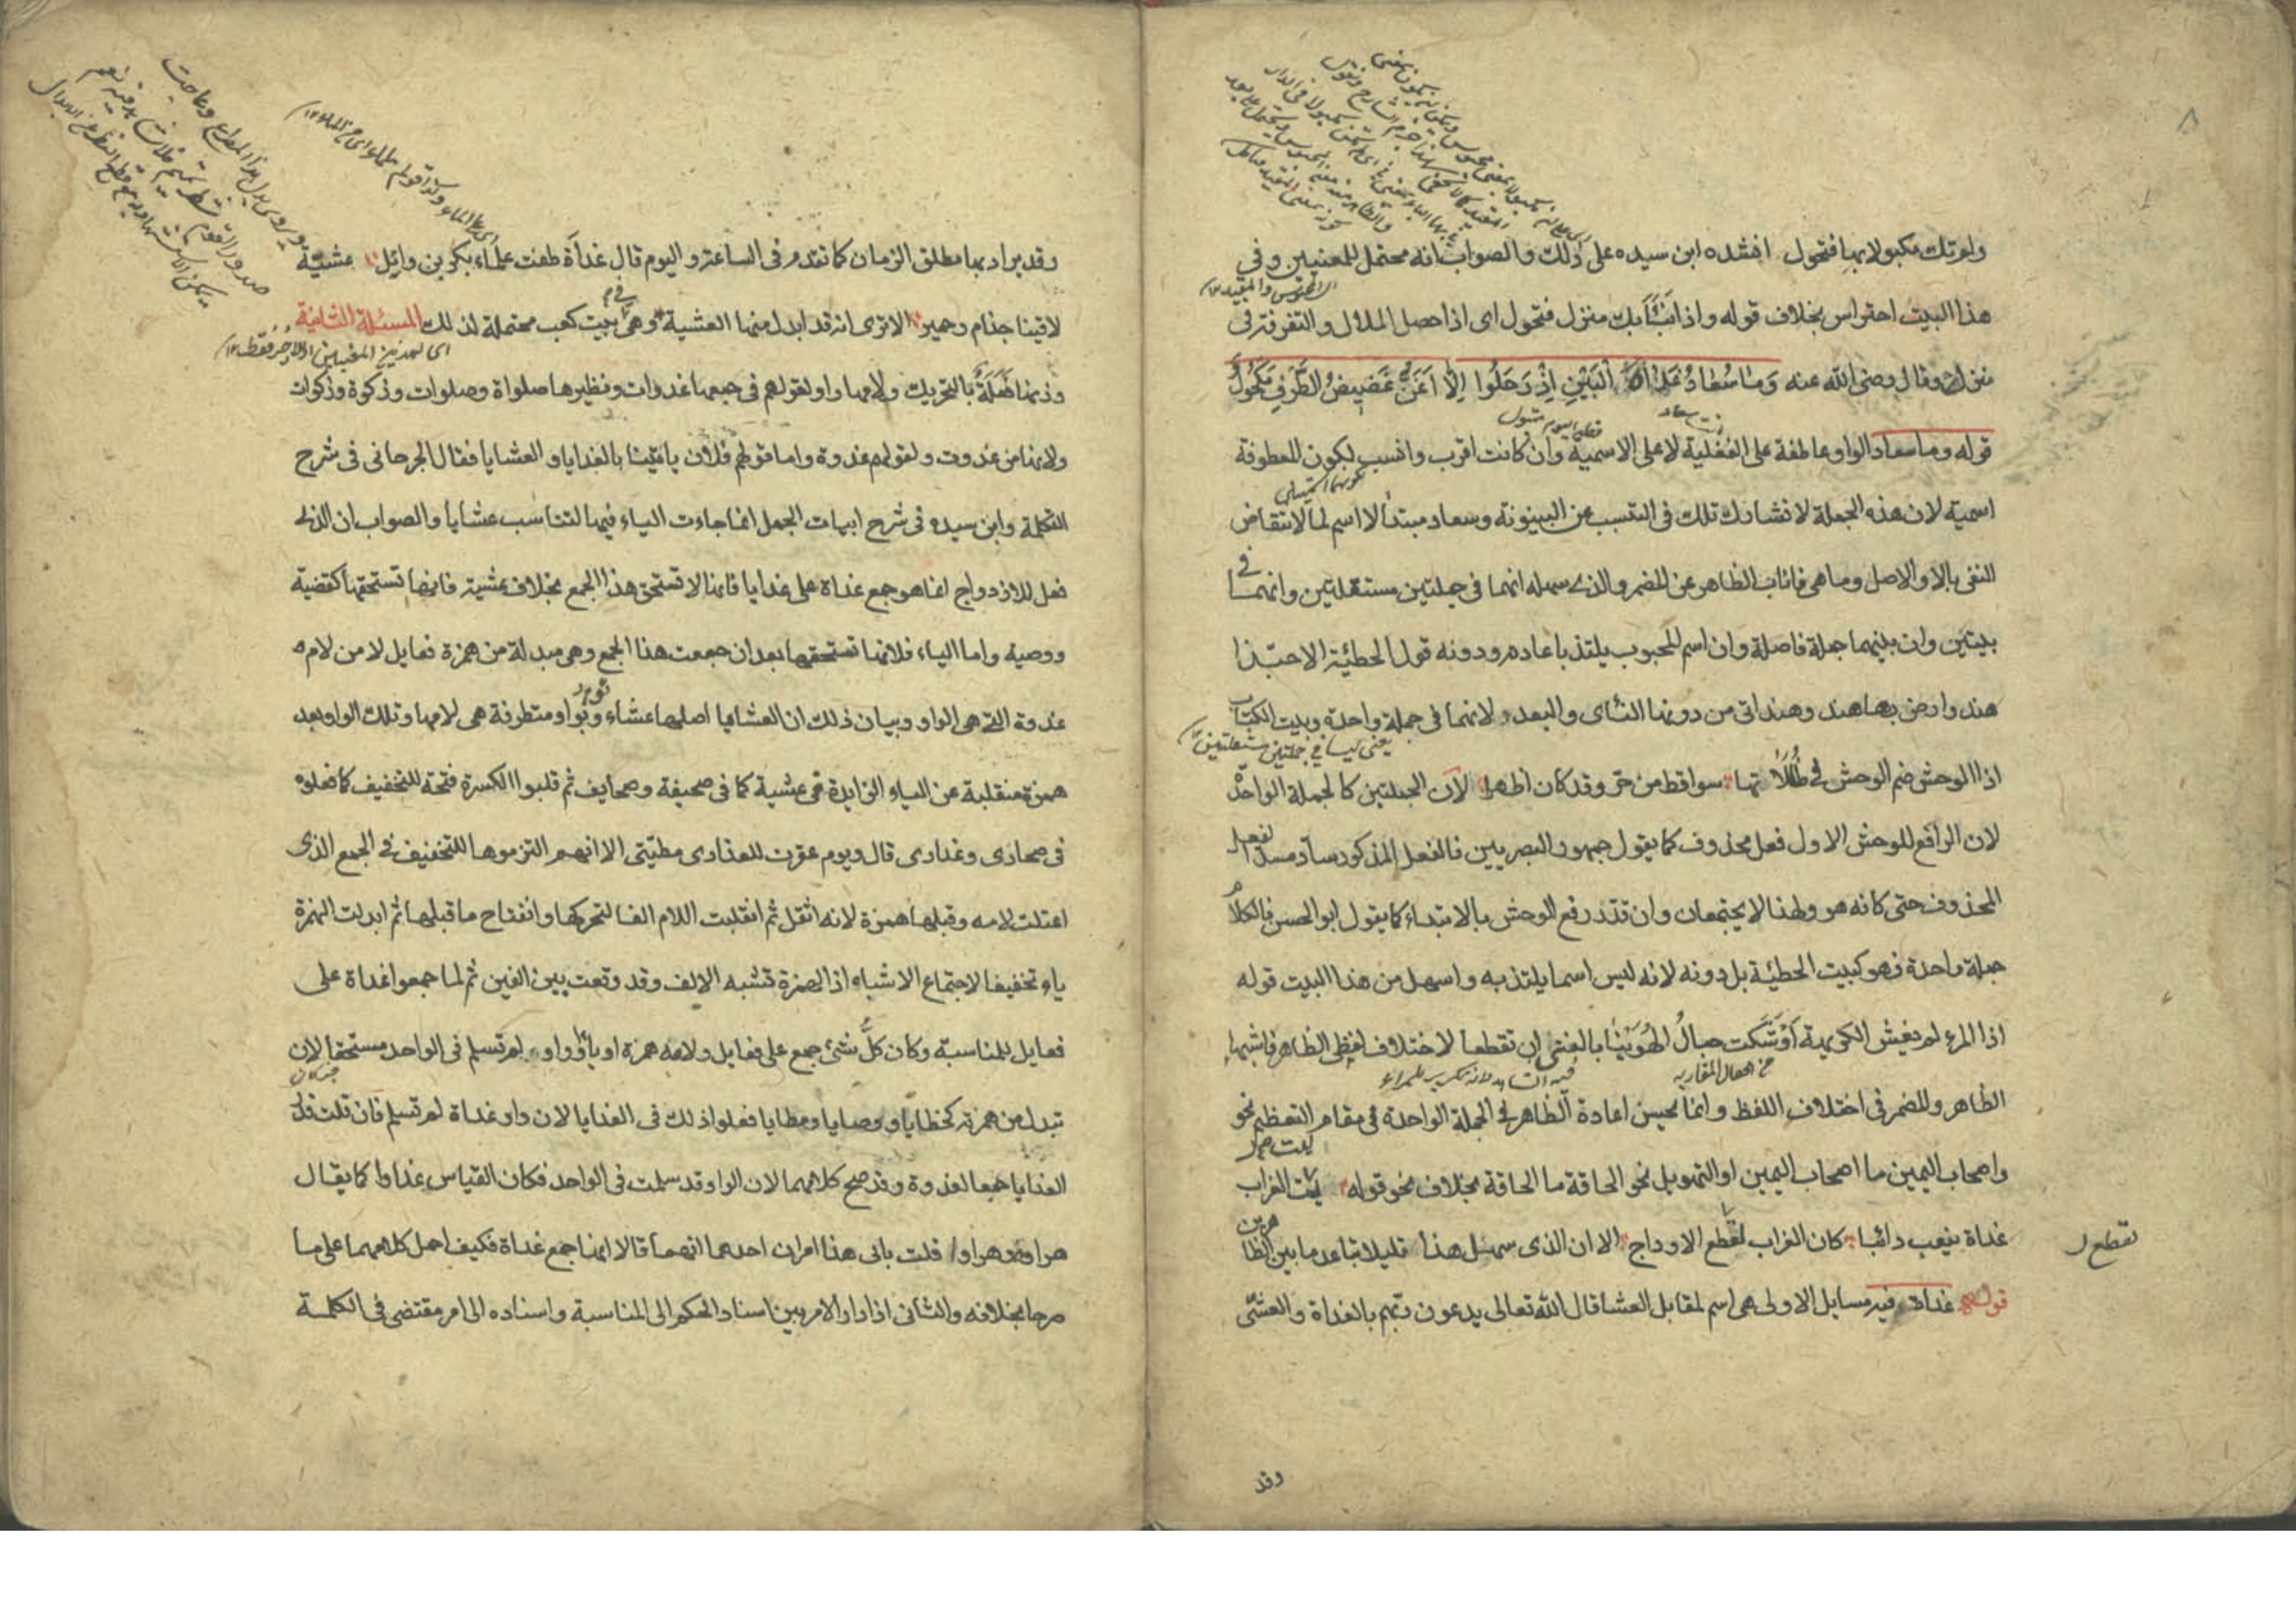 ولو تك مكبولا بها فتحول انشده ابن سيده على ذلك والصواب انه محتمل للمعنيين وفي
هذا البيت احتراس بخلاف قوله واذا نبا بك منزل فتحول اى اذا حصل الملال والتفرقة فى
منزل وقال رضى الله عنه وَمَا سُعَادُ غَدَاةَ الْبَيْنِ اِذْ رَحَلُوا اِلَّا اَغَنُّ غَضِيضُ الطَّرْفِ مَكْحُولُ
قوله وما سعاد الواو عاطفة على الفعلية لا على الاسمية وان كانت اقرب وانسب لكون المعطوفة
اسمية لان هذه الجملة لا تشارك تلك فى التسبب عن البينونة وسعاد مبتدأ لا اسم لما لانتقاض
النفى بالا والاصل وما هى فاناب الظاهر عن المضمر والذى سهله انهما فى جملتين مستقلتين وانهما فى
بيتين وان بينهما جملة فاصلة وان اسم المحبوب يلتذ باعادته ودونه قول الحطيئة الا حبّذا
هند وارض بها هند وهند اتى من دونها النأى والبعد لانهما فى جملة واحدة وبيت الكتاب
يعنى ليسا فى جملتين مستقلتين
اذا الوحش ضم الوحش فى ظُلُلَاتها سواقط من حر وقد كان اظهرا لان الجملتين كالجملة الواحدة
لان الرافع للوحش الاول فعل محذوف كما يقول جمهور البصريين فالفعل المذكور ساد مسد الفعل
المحذوف حتى كانه هو ولهذا لا يجتمعان وان قدر رفع الوحش بالابتداء كما يقول ابو الحسن فالكلام
جملة واحدة فهو كبيت الحطيئة بل دونه لانه ليس اسما يلتذ به واسهل من هذا البيت قوله
اذا المرء لم يغش الكريهة اَوْشَكَت حبالُ الهُوَيْنَا بالفتى ان تقطعا لاختلاف لفظى الظاهر فاشبها
من افعال المقاربة
الظاهر والمضمر فى اختلاف اللفظ وانما يحسن اعادة الظاهر فى الجملة الواحدة فى مقام التعظيم نحو
واصحاب اليمين ما اصحاب اليمين او التهويل نحو الحاقة ما الحاقة بخلاف نحو قوله ليت الغراب
غداة ينعب دائبا كان الغراب لقطع الاوداج الا ان الذى سهل هذا قليلا تباعد ما بين الظاهرين
تقطع
قوله غداة فيه مسايل الاولى هى اسم لمقابل العشا قال الله تعالى يدعون ربهم بالغداة والعشىّ
وقد
وقد يراد بها مطلق الزمان كما تقدم فى الساعة واليوم قال غداة طفت علماء بكر بن وائل عشيّة
لاقينا جذام وحمير الا ترى انه قد ابدل منها العشية وهى فى بيت كعب محتملة لذلك المسئلة الثانية
وزنها فَعَلَةٌ بالتحريك ولامها واو لقولهم فى جمعها غدوات ونظيرها صلواة وصلوات وزكوة وزكوات
ولانها من غدوت ولقولهم غدوة واما قولهم فلان ياتينا بالغدايا والعشايا فقال الجرجانى فى شرح
التكملة وابن سيده فى شرح ابيات الجمل انما جاءت الياء فيها لتناسب عشايا والصواب ان الذى
فعل للازدواج انما هو جمع غداة على غدايا فانها لا تستحق هذا الجمع بخلاف عشية فانها تستحقها كقضية
ووصية واما الياء فلانها تستحقها بعد ان جمعت هذا الجمع وهى مبدلة من همزة فعايل لا من لام
غدوة التى هى الواو وبيان ذلك ان العشايا اصلها عشاءو بواو متطرفة هى لامها وتلك الواو بعد
همزة منقلبة عن الياء الزايدة فى عشية كما فى صحيفة وصحايف ثم قلبوا الكسرة فتحة للتخفيف كما فعلوه
فى صحارى وعذارى قال ويوم عقرت للعذارى مطيّتى الا انهم التزموها للتخفيف فى الجمع الذى
اعتلت لامه وقبلها همزة لانه اثقل ثم انقلبت اللام الفا لتحركها وانفتاح ما قبلها ثم ابدلت الهمزة
ياء تخفيفا لاجتماع الاشباه اذ الهمزة تشبه الالف وقد وقعت بين الفين ثم لما جمعوا غداة على
فعايل للمناسبة وكان كلُّ شىء جمع على فعايل ولامه همزة او ياء او واو لم تسلم فى الواحد مستحقا لان
تبدل من همزته كخطايا ووصايا ومطايا فعلوا ذلك فى الغدايا لان واو غداة لم تسلم فان قلت قدّر
الغدايا جمعا لغدوة وقد صح كلامهما لان الواو قد سلمت فى الواحد فكان القياس غداوا كما يقال
هراوة وهراوا قلت يابى هذا امران احدهما انهما قالا انها جمع غداة فكيف احمل كلامهما على ما
صرحا بخلافه والثانى اذا دار الامر بين اسناد الحكم الى المناسبة واسناده الى امر مقتضى فى الكلمة